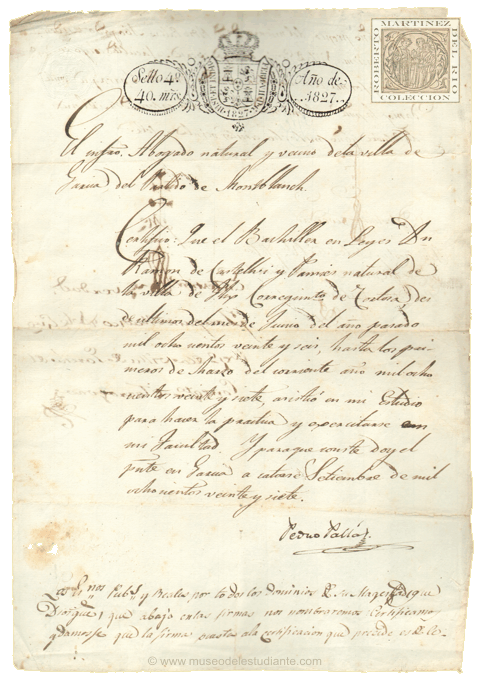 Sello 4º
40. mrs.
Año de
1827.
ROBERTO MARTINEZ DEL RIO
COLECCION
El infro. Abogado natural y vecino de la villa de
Garcia del Partido de Montblanch
Certifico: Que el Bachiller en Leyes Dn
Ramon de Castellvi y Pamies natural de
la villa de Flix Corregimto de Tortosa, des
de ultimos del mes de Junio del año pasado
mil ocho cientos veinte y seis, hasta los pri-
meros de Marzo del corriente año mil ocho
cientos veinte y siete, asistió en mi Estudio
para hacer la practica y exercitarse en
mi facultad Y paraque conste doy el
pnte en Garcia a catorse Setiembre de mil
ochocientos veinte y siete.
Pedro
nos Pubs y Reales por todos los dominios de su Magestad que
Dios gue que abajo entas firmas nos nombraremos Certificamos
y damos fe que la firma puesta ala certificacion que precede es de
© www.museodelestudiante.com